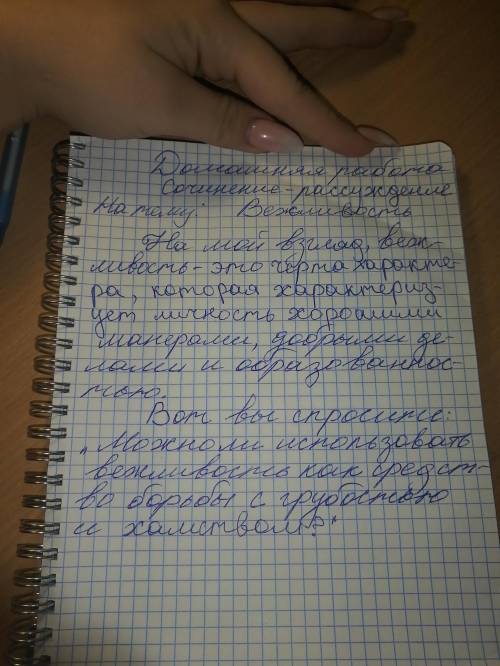 Домашняя работа
Сочинение-рассуждение
На тему: Вежливость
На мой взгляд, веж-
ливость - это черта характе-
ра, которая характериз-
ует личность хорошими
манерами, добрыми де-
лами и образованнос-
тью.
Вот вы спросите:
„Можноли использовать
вежливость как средст-
во борьбы с грубостью
и хамством?"